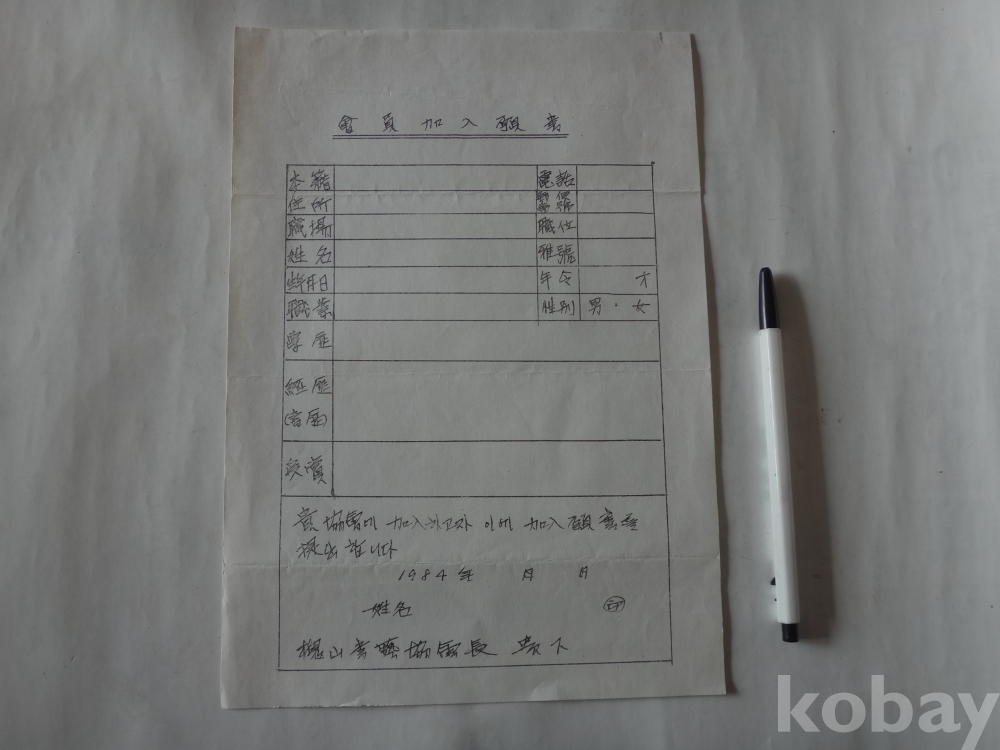 會員加入願書
本籍 電話
住所 番號
職場 職位
姓名 雅號
生年月日 年令 才
職業 性別 男·女
学歴
經歴
(書歴)
受賞
貴協會에 加入하고자 이에 加入願書를
提出합니다
1984年 月 日
姓名 ㊞
槐山書藝協會長 貴下
kobay